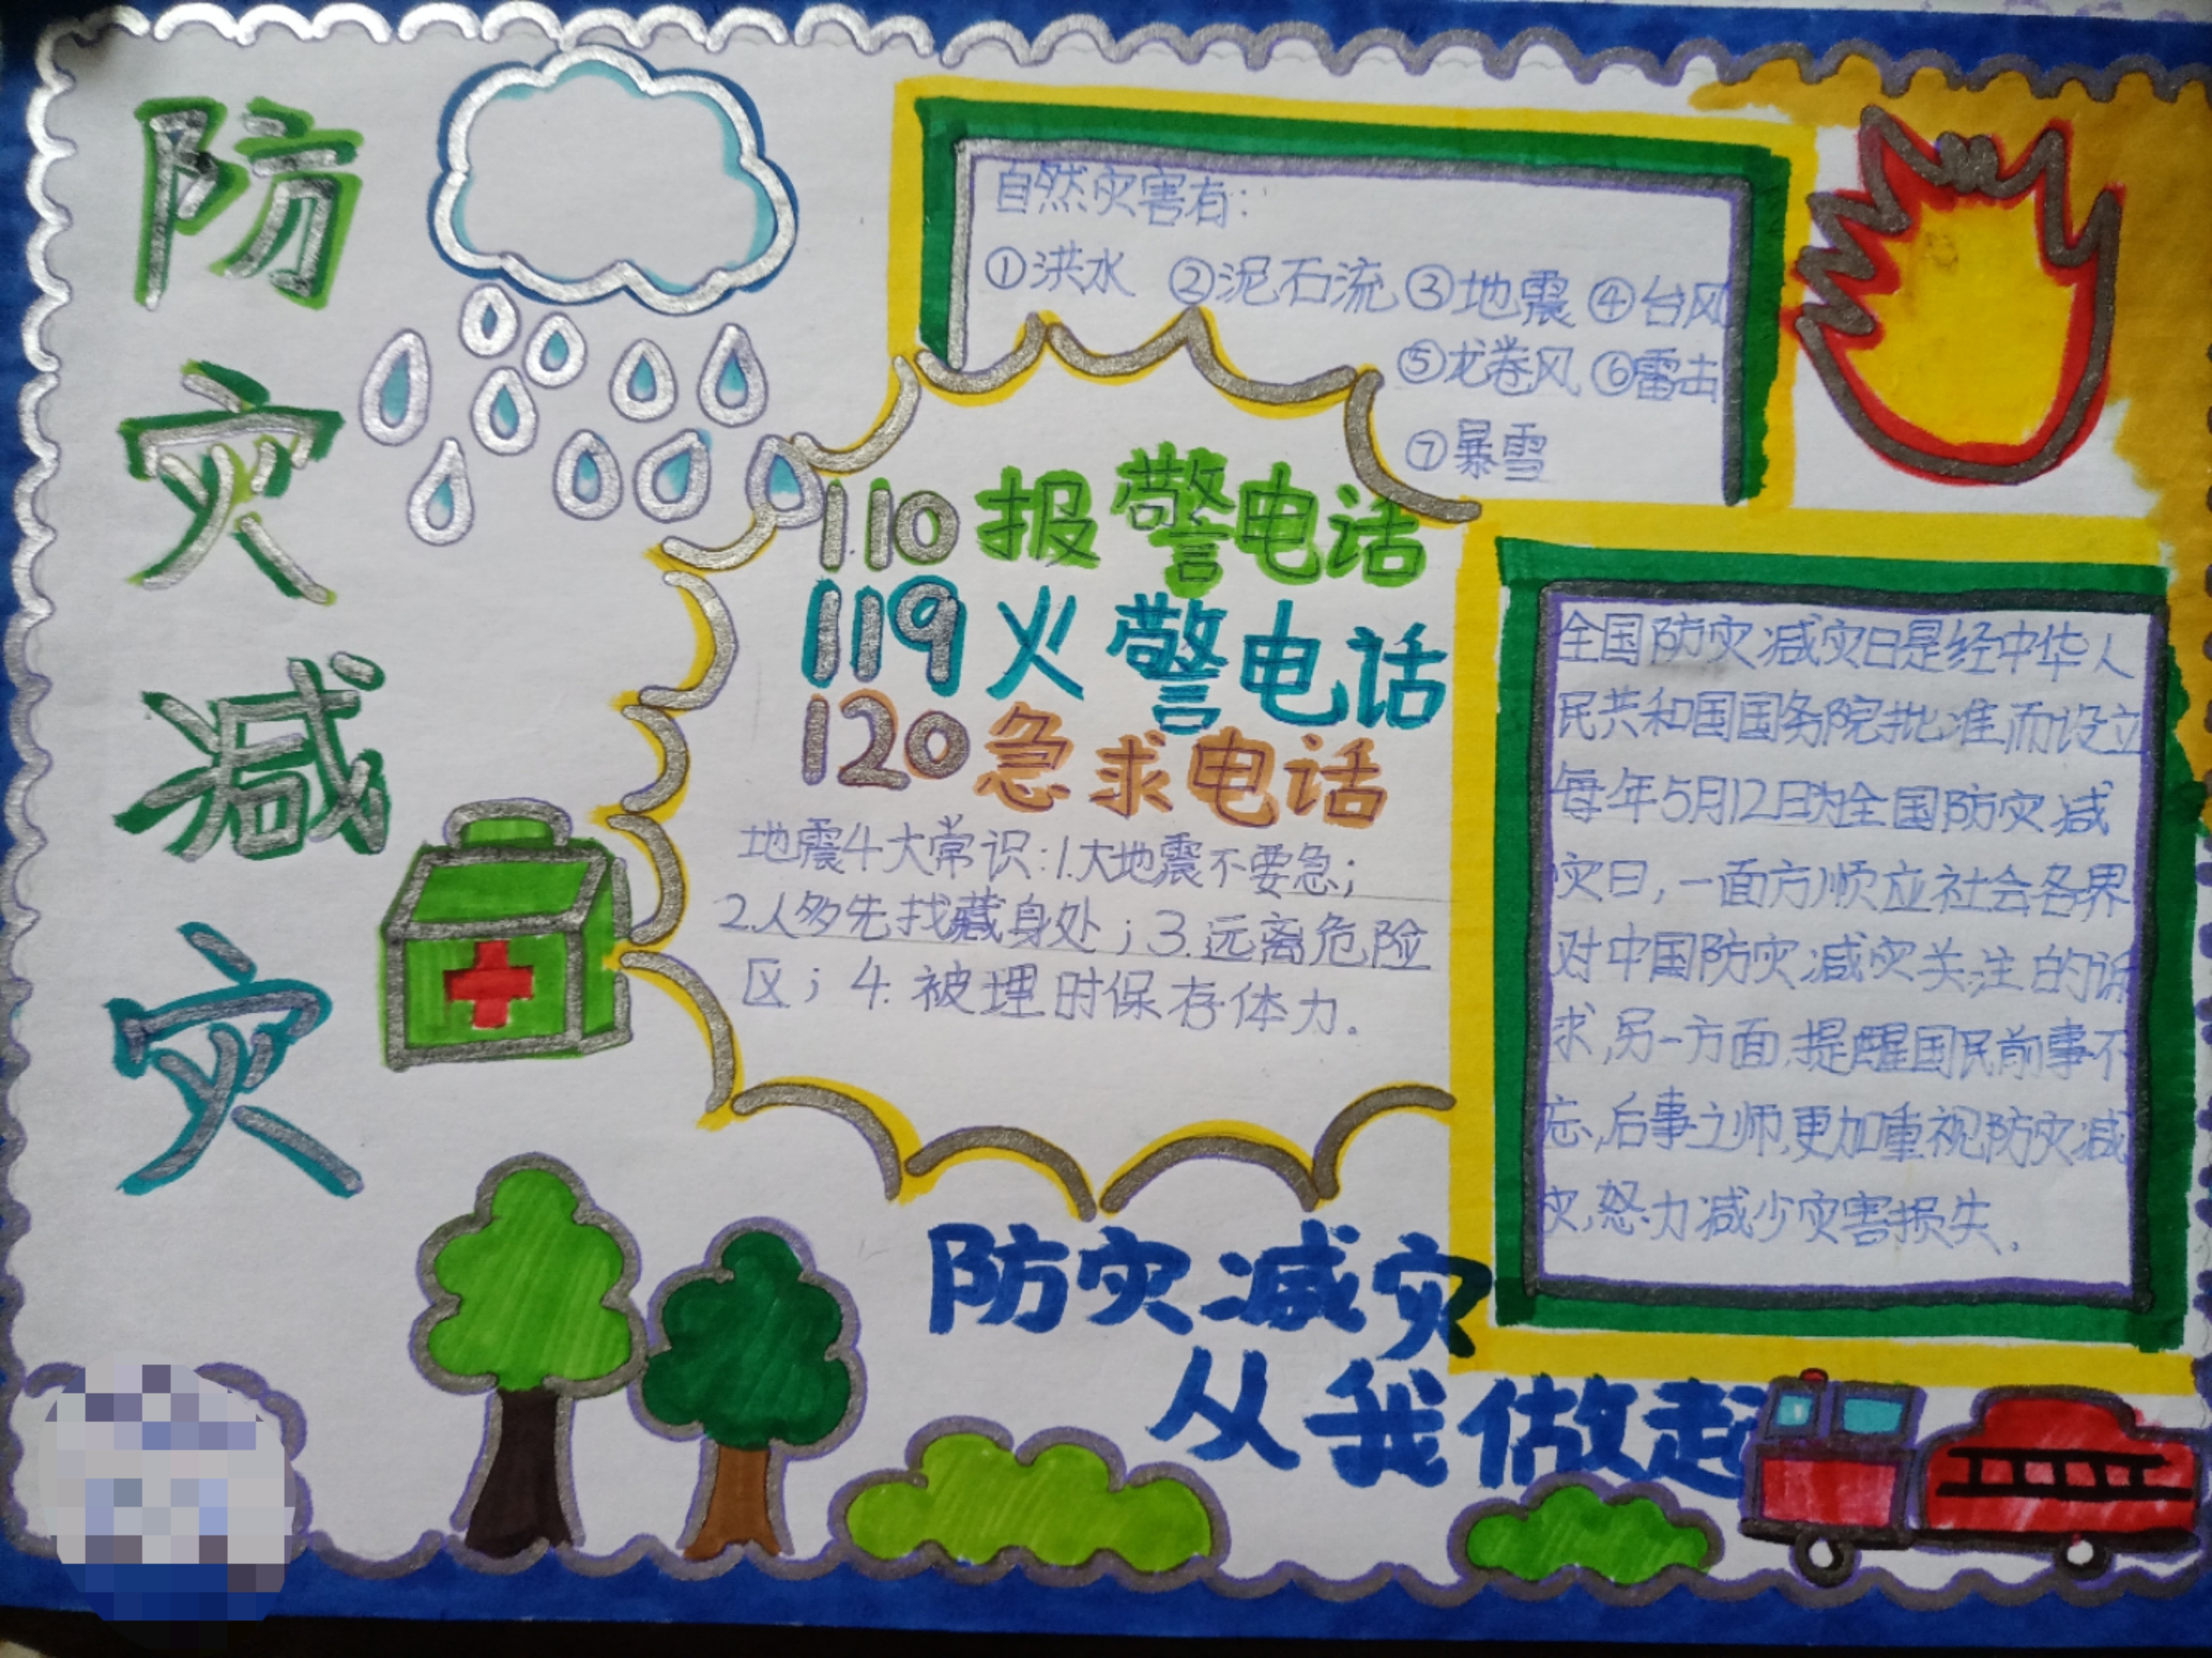 防灾减灾
自然灾害有:
①洪水 ②泥石流 ③地震 ④台风
⑤龙卷风 ⑥雷击
⑦暴雪
110 报警电话
119 火警电话
120 急求电话
地震4大常识:1.大地震不要急;
2.人多先找藏身处;3.远离危险
区;4.被埋时保存体力.
全国防灾减灾日是经中华人
民共和国国务院批准而设立
每年5月12日为全国防灾减
灾日,一面方顺应社会各界
对中国防灾减灾关注的诉
求,另一方面,提醒国民前事不
忘,后事之师,更加重视防灾减
灾,努力减少灾害损失.
防灾减灾
从我做起